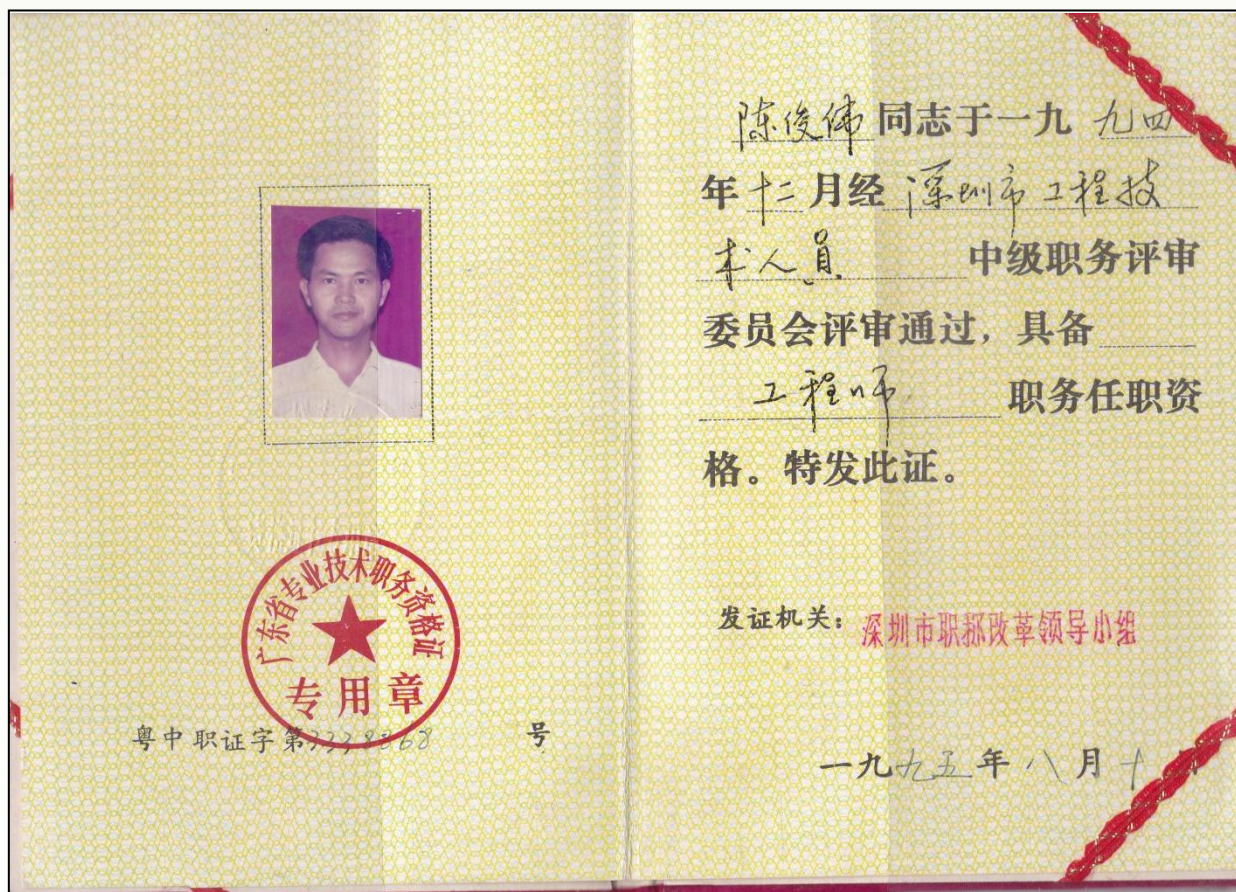 广东省专业技术职务资格证
专用章
粤中职证字第3338868号
陈俊伟同志于一九九四
年十二月经深圳市工程技
术人员中级职务评审
委员会评审通过，具备
工程师职务任职资
格。特发此证。
发证机关：深圳市职称改革领导小组
一九九五年八月十